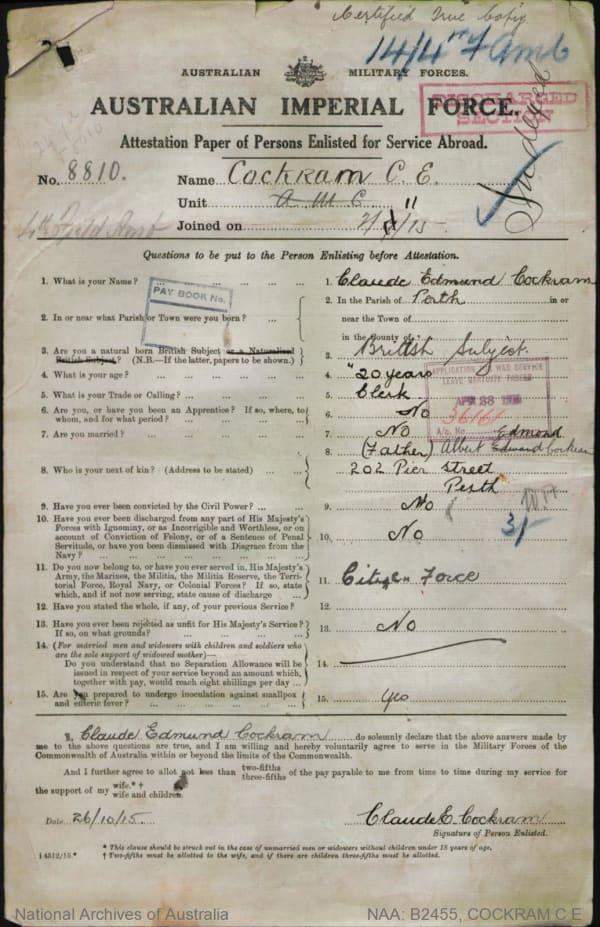 Certified True Copy
14/4th F Amb
AUSTRALIAN MILITARY FORCES.
AUSTRALIAN IMPERIAL FORCE.
DISCHARGED
SECTION
Indexed
Attestation Paper of Persons Enlisted for Service Abroad.
No. 8810. Name Cockram C. E.
Unit A M C "
4th Field Amb Joined on
Questions to be put to the Person Enlisting before Attestation.
1. What is your Name? 1. Claude Edmund Cockram
PAY BOOK No.
2. In or near what Parish or Town were you born? 2. In the Parish of Perth in or
near the Town of
in the County of
3. Are you a natural born British Subject or a Naturalized British Subject? (N.B.—If the latter, papers to be shown.) 3. British Subject.
4. What is your age? 4. 20 years
APPLICATION WAR SERVICE
LEAVE GRATUITY PASSED
APR 28
36161
A/c. No.
5. What is your Trade or Calling? 5. Clerk
6. Are you, or have you been an Apprentice? If so, where, to whom, and for what period? 6. No
7. Are you married? 7. No
Edmond
8. Who is your next of kin? (Address to be stated) 8. (Father) Albert Edward Cockram
202 Pier Street
Perth
W.A
9. Have you ever been convicted by the Civil Power? 9. No
10. Have you ever been discharged from any part of His Majesty's
Forces with Ignominy, or as Incorrigible and Worthless, or on
account of Conviction of Felony, or of a Sentence of Penal
Servitude, or have you been dismissed with Disgrace from the
Navy? 10. No
11. Do you now belong to, or have you ever served in, His Majesty's
Army, the Marines, the Militia, the Militia Reserve, the Terri-
torial Force, Royal Navy, or Colonial Forces? If so, state
which, and if not now serving, state cause of discharge 11. Citizen Force
12. Have you stated the whole, if any, of your previous Service? 12.
13. Have you ever been rejected as unfit for His Majesty's Service?
If so, on what grounds? 13. No
14. (For married men and widowers with children and soldiers who
are the sole support of widowed mother)—
Do you understand that no Separation Allowance will be
issued in respect of your service beyond an amount which,
together with pay, would reach eight shillings per day 14.
15. Are you prepared to undergo inoculation against smallpox
and enteric fever? 15. Yes
I, Claude Edmund Cockram do solemnly declare that the above answers made by
me to the above questions are true, and I am willing and hereby voluntarily agree to serve in the Military Forces of the
Commonwealth of Australia within or beyond the limits of the Commonwealth.
And I further agree to allot not less than two-fifths three-fifths of the pay payable to me from time to time during my service for
the support of my wife.*† wife and children.
Date 26/10/15. Claude E. Cockram
Signature of Person Enlisted.
* This clause should be struck out in the case of unmarried men or widowers without children under 18 years of age.
† 4512/15.* † Two-fifths must be allotted to the wife, and if there are children three-fifths must be allotted.
National Archives of Australia NAA: B2455, COCKRAM C E